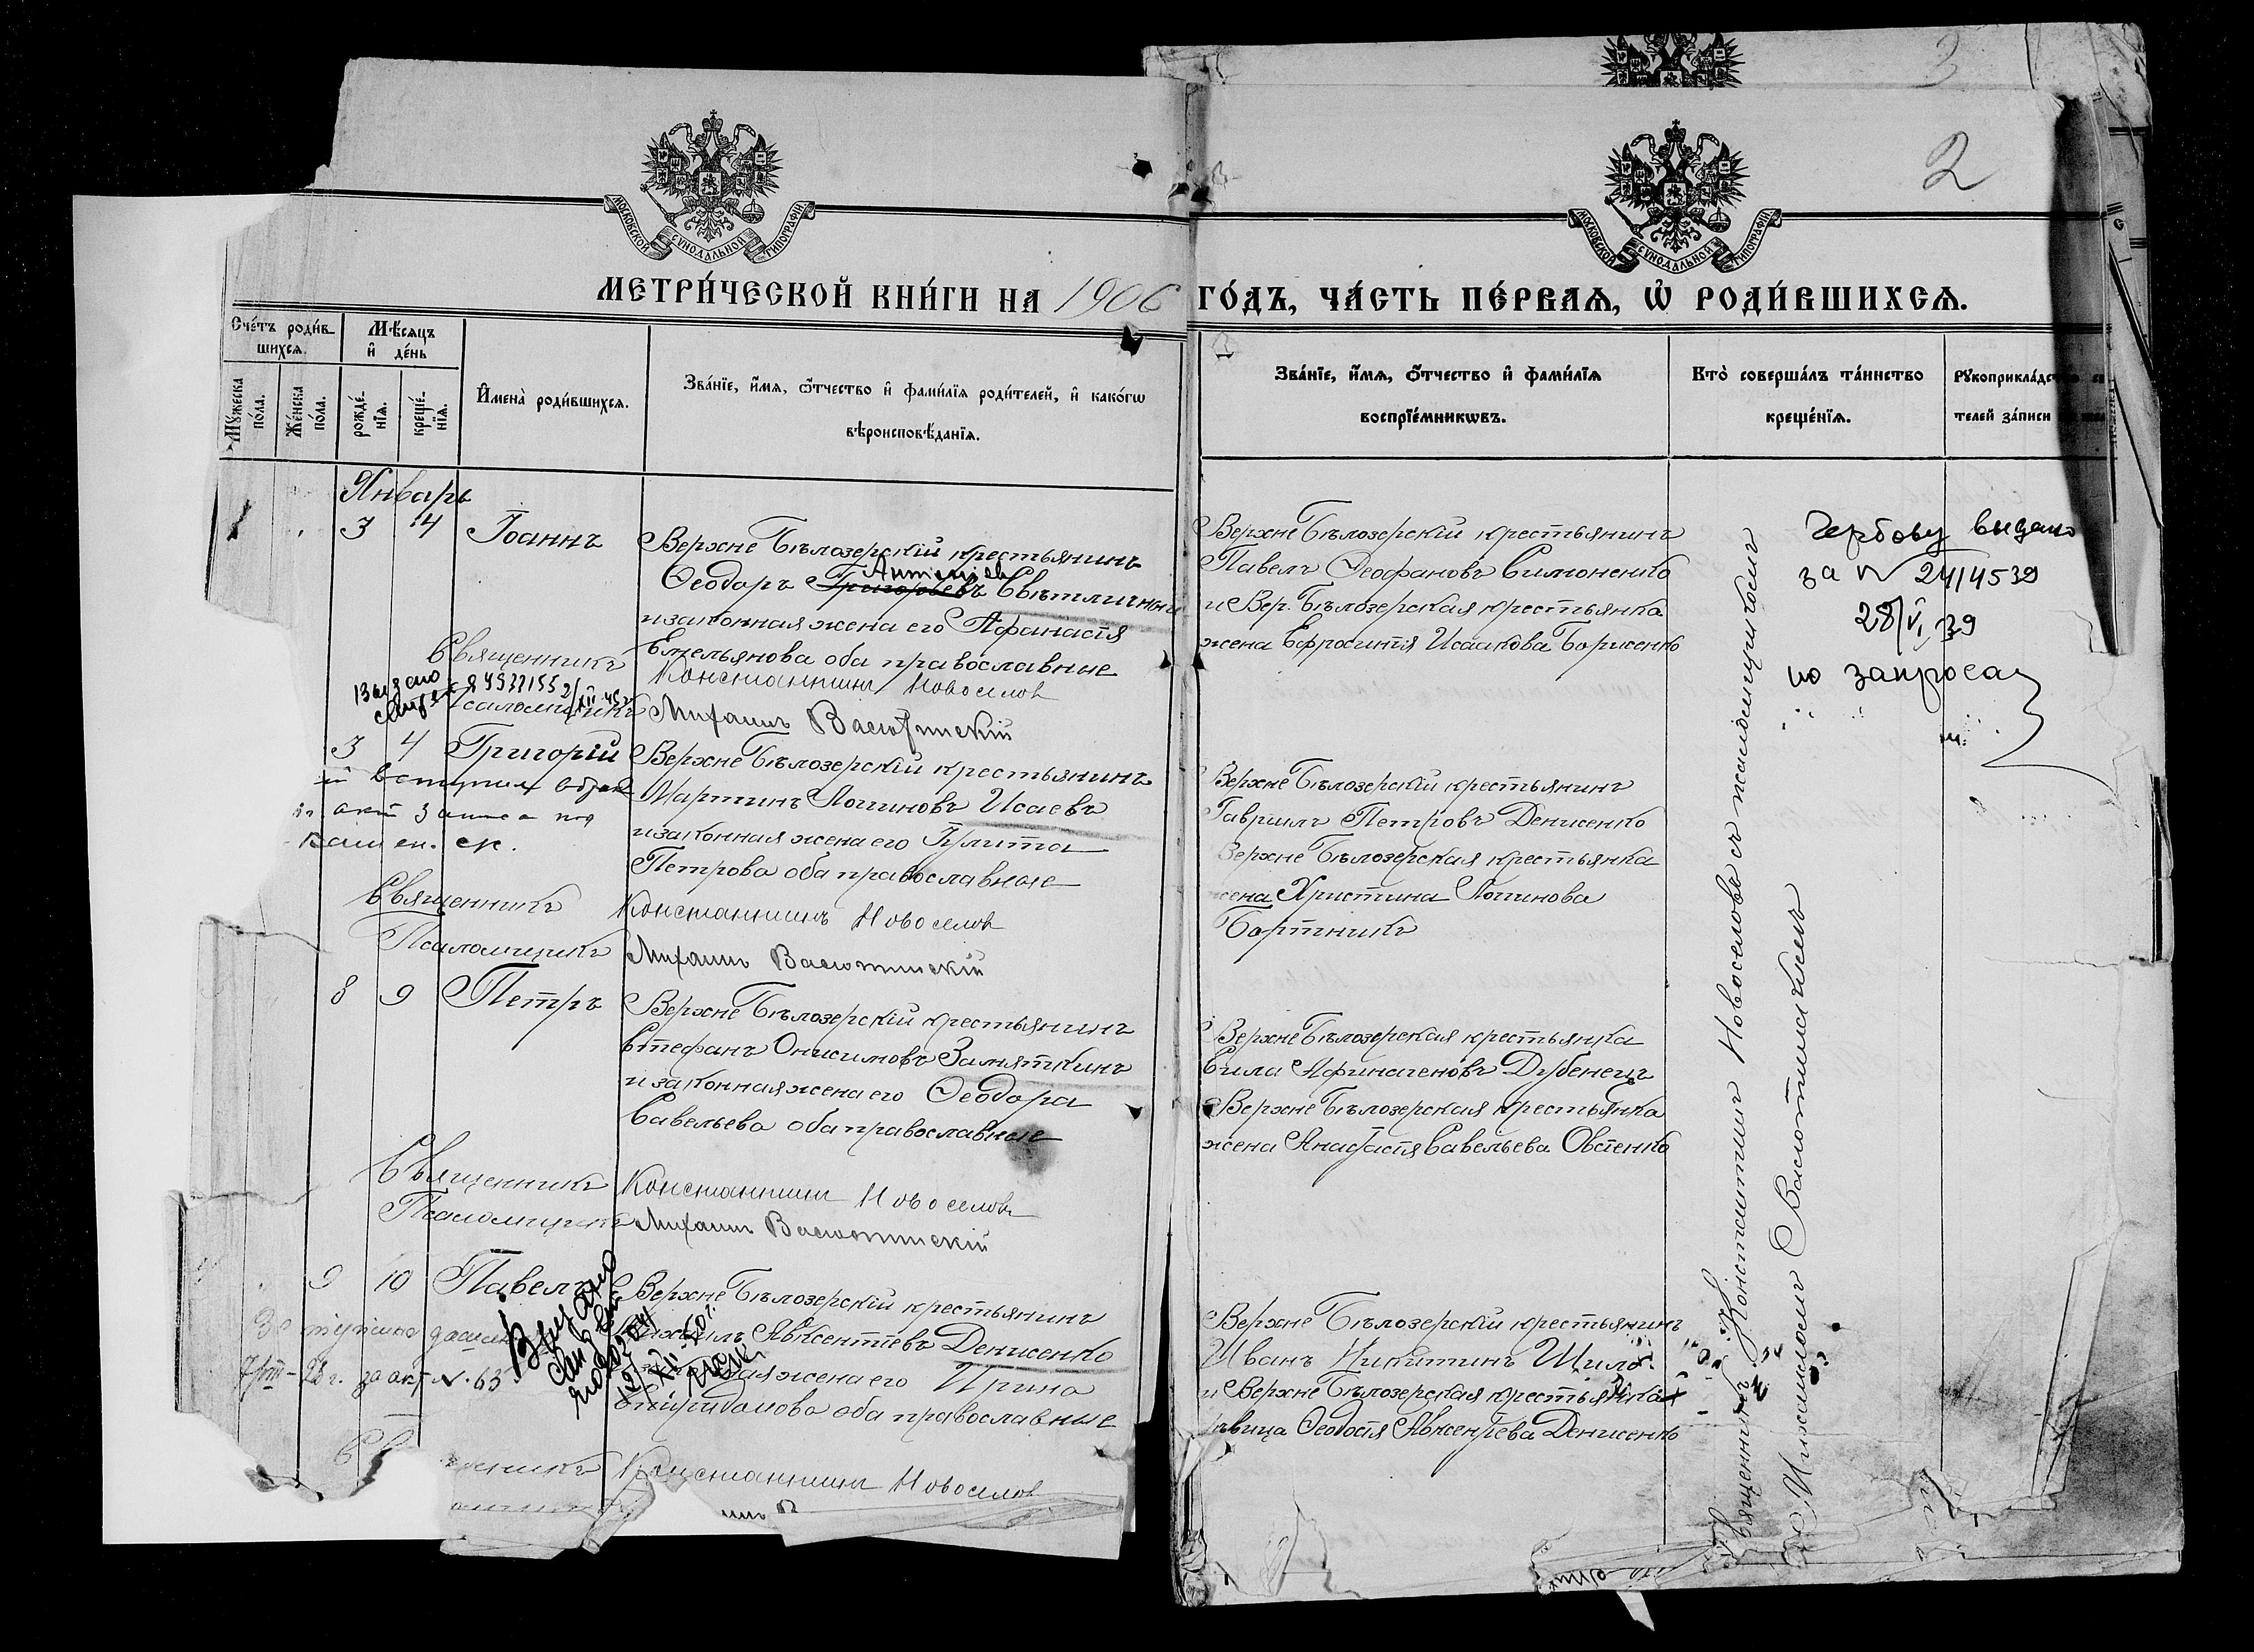 3
2
МОСКОВСКОЙ СУНОДАЛЬНОЙ ТИПОГРАФІИ
МОСКОВСКОЙ СУНОДАЛЬНОЙ ТИПОГРАФІИ
МЕТРИ́ЧЕСКОЙ КНИ́ГИ НА 1906 ГО́ДЪ, ЧА́СТЬ ПЕ́РВАЯ, Ѡ РОДИ́ВШИХСЯ.
Сче́тъ роди́в
шихся.
Мѣ́сяцъ
и҆ де́нь
Мꙋ́жеска
по́ла.
Же́нска
по́ла.
рожде́-
нїя.
креще́-
нїя.
И҆мена̀ роди́вшихся.
Зва́нїе, и҆́мя, ѻ҆́тчество и҆ фами́лїя роди́телей, и҆ како́гѡ
вѣроисповѣ́данїя.
Зва́нїе, и҆́мя, ѻ҆́тчество и҆ фами́лїя
воспрїе́мникѡвъ.
Кто̀ соверша́лъ та́инство
креще́нїя.
Рꙋкоприкла́дство
телей за́писи
Январь
1 3 4 Іоаннъ
Верхне Бѣлозерскій крестьянинъ
Ѳеодоръ Григорьевъ
и законная жена его Афанасія
Емельянова оба православные
Священникъ Константинъ Новоселовъ
Псаломщикъ Михаилъ Васютинскій
Верхне Бѣлозерскій крестьянинъ
Павелъ Ѳеофановъ Симоненко
и Вер. Бѣлозерская крестьянка
жена Ефросинія Исаакова Борисенко
выдано
за № 2414539
28/V 39
по запросам
3 4 Григорій
Верхне Бѣлозерскій крестьянинъ
Мартинъ Логиновъ Исаевъ
и законная жена его
Петрова оба православные
Священникъ Константинъ Новоселовъ
Псаломщикъ Михаилъ Васютинскій
Верхне Бѣлозерскій крестьянинъ
Гавриилъ Петровъ Денисенко
Верхне Бѣлозерская крестьянка
жена Христина Логинова
Бортникъ
8 9 Петръ
Верхне Бѣлозерскій крестьянинъ
Стефанъ Онисимовъ Замяткинъ
и законная жена его Ѳеодора
Савельева оба православные
Священникъ Константинъ Новоселовъ
Псаломщикъ Михаилъ Васютинскій
Верхне Бѣлозерская крестьянка
Сила Афиногеновъ Дубенецъ
Верхне Бѣлозерская крестьянка
жена Анастасія Савельева Овсіенко
9 10 Павелъ
Верхне Бѣлозерскій крестьянинъ
Михаилъ Авксентіевъ Денисенко
жена его Ирина
Спиридонова оба православные
за акт № 63
Выдано
Константинъ Новоселовъ
Верхне Бѣлозерскій крестьянинъ
Иванъ Никитинъ Шило
и Верхне Бѣлозерская крестьянка
дѣвица Ѳеодосія Авксентіева Денисенко
Священникъ Константинъ Новоселовъ съ псаломщикомъ
Михаиломъ Васютинскимъ